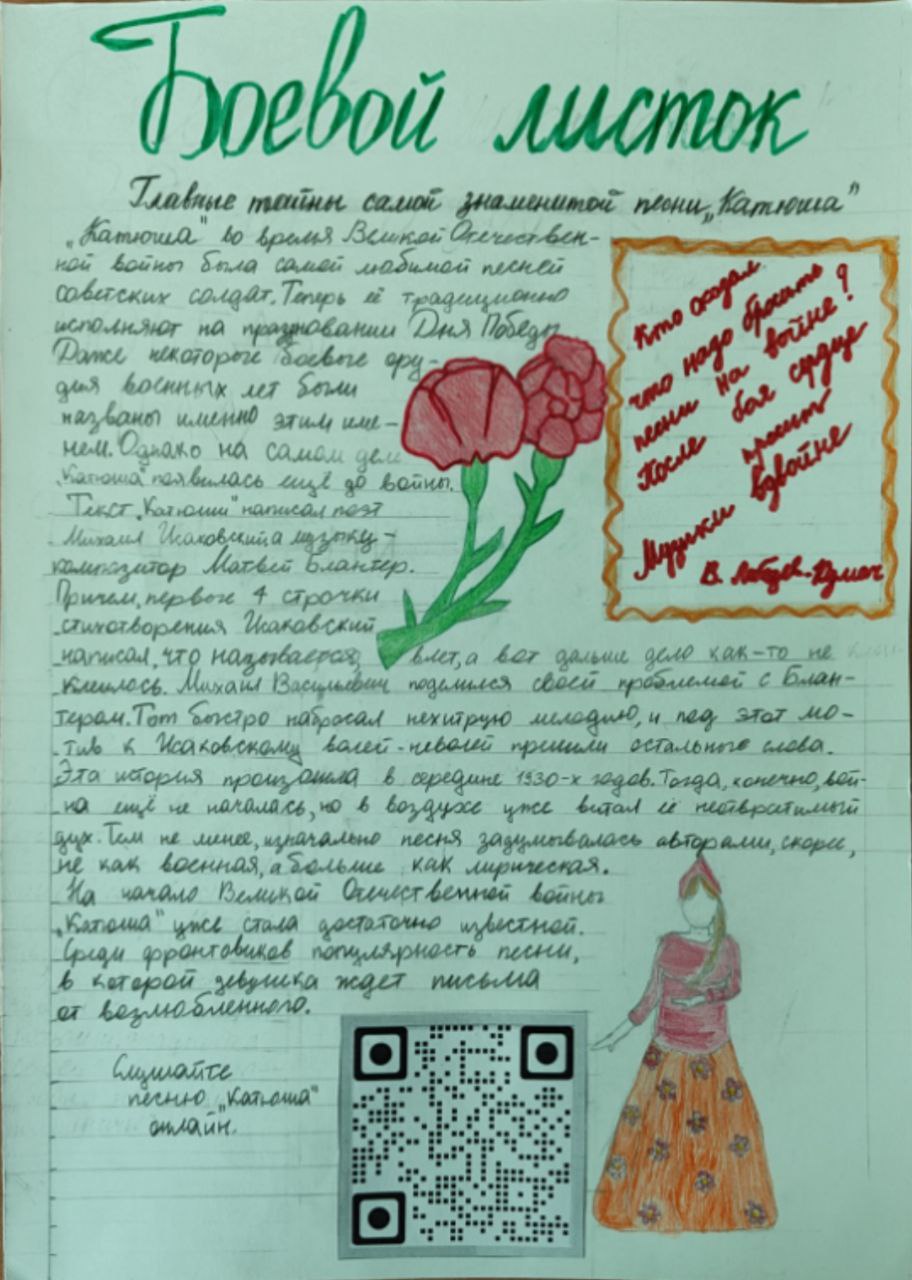 Боевой листок
Главные тайны самой знаменитой песни „Катюша"
„Катюша" во время Великой Отечествен-
ной войны была самой любимой песней
советских солдат. Теперь её традиционно
исполняют на праздновании Дня Победы
Даже некоторые боевые ору-
дия военных лет были
названы именно этим име-
нем. Однако на самом деле
„Катюша" появилась ещё до войны.
Текст „Катюши" написал поэт
Михаил Исаковский а музыку -
композитор Матвей Блантер.
Причем, первые 4 строчки
стихотворения Исаковский
написал, что называется, влет, а вот дальше дело как-то не
клеилось. Михаил Васильевич поделился своей проблемой с Блан-
тером. Тот быстро набросал нехитрую мелодию, и под этот мо-
тив к Исаковскому волей-неволей пришли остальные слова.
Эта история произошла в середине 1930-х годов. Тогда, конечно, вой-
на ещё не началась, но в воздухе уже витал её неотвратимый
дух. Тем не менее, изначально песня задумывалась авторами, скорее,
не как военная, а больше как лирическая.
На начало Великой Отечественной войны
„Катюша" уже стала достаточно известной.
Среди фронтовиков популярность песни,
в которой девушка ждет письма
от возлюбленного.
Кто сказал,
что надо бросить
песни на войне?
После боя сердце
просит
Музыки вдвойне
В. Лебедев-Кумач
Слушайте
песню „Катюша"
онлайн.